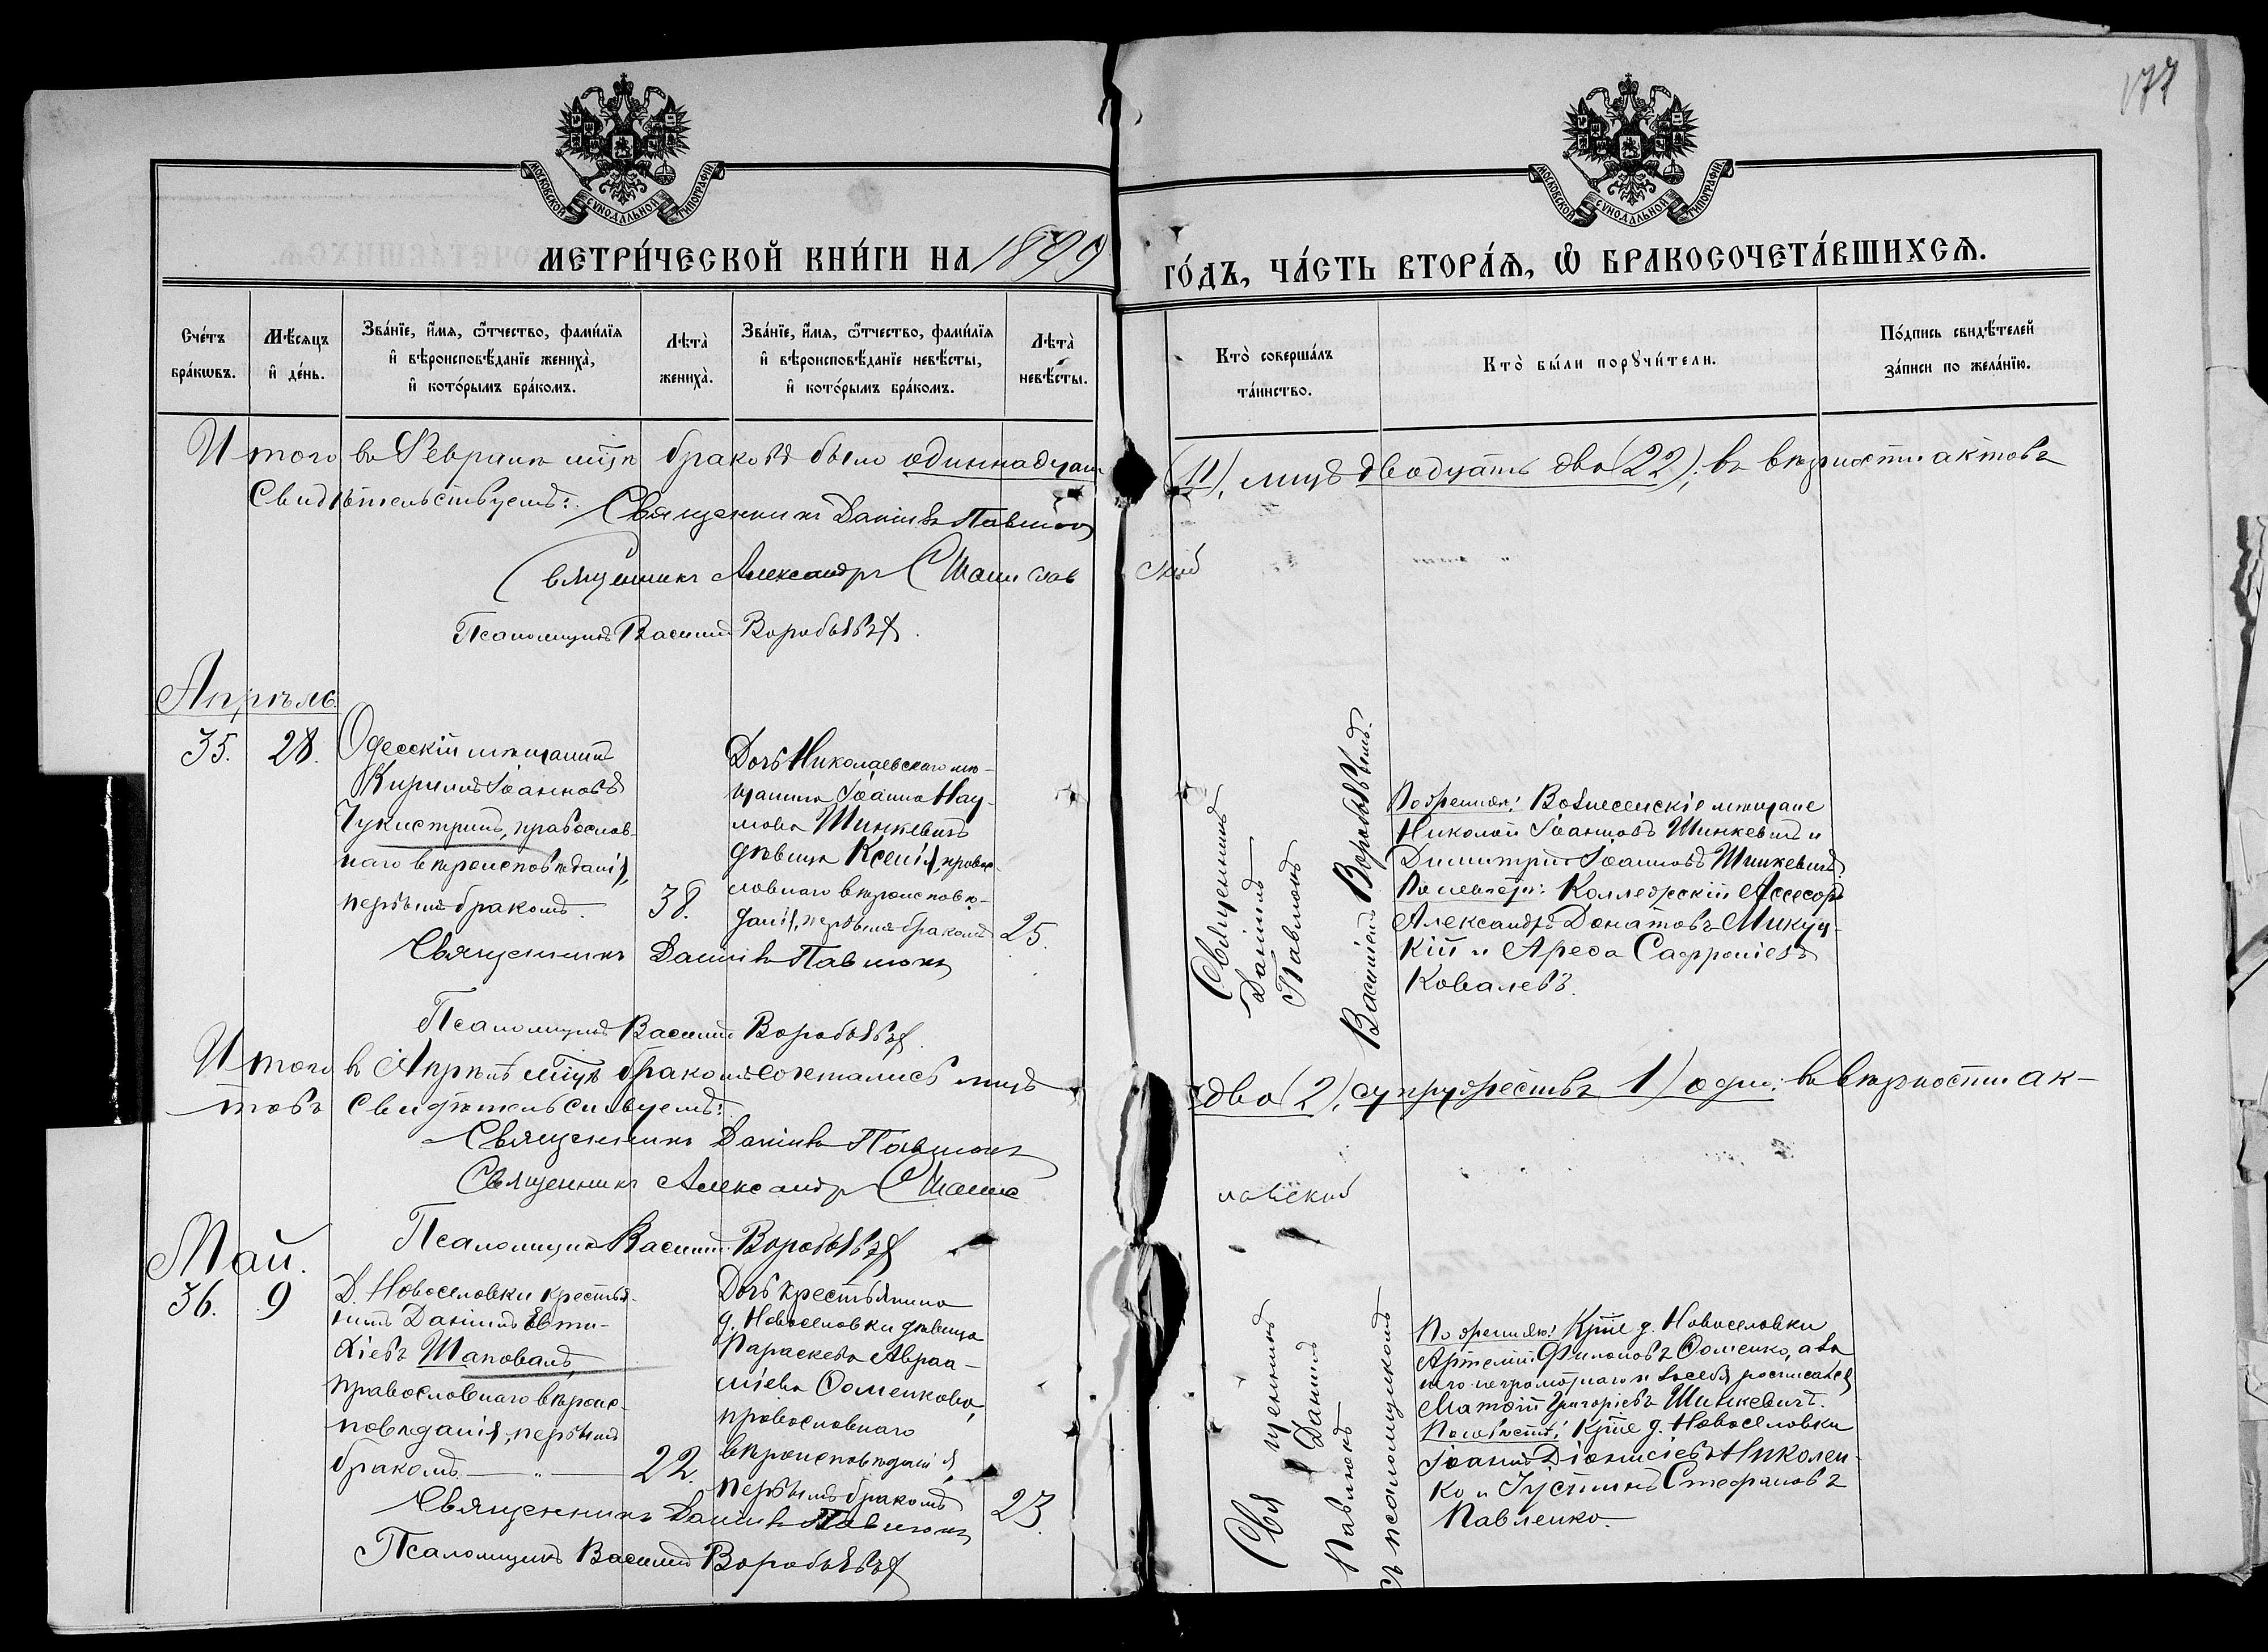 177
МОСКОВСКОЙ СУНОДАЛЬНОЙ ТИПОГРАФІИ
МОСКОВСКОЙ СУНОДАЛЬНОЙ ТИПОГРАФІИ
МЕТРИ́ЧЕСКОЙ КНИ́ГИ НА 1899
ГО́ДЪ, ЧА́СТЬ ВТОРА́Я, Ѽ БРАКОСОЧЕТА́ВШИХСЯ.
Сче́тъ бра́кѡвъ.
Мѣ́сяцъ и҆ де́нь.
Зва́нїе, и҆́мя, ѻ҆́тчество, фами́лїя и҆ вѣроисповѣ́данїе жениха̀, и҆ кото́рымъ бра́комъ.
Лѣта̀ жениха̀.
Зва́нїе, и҆́мя, ѻ҆́тчество, фами́лїя и҆ вѣроисповѣ́данїе невѣ́сты, и҆ кото́рымъ бра́комъ.
Лѣта̀ невѣ́сты.
Кто̀ соверша́лъ та́инство.
Кто̀ бы́ли порꙋчи́тели.
По́дпись свидѣ́телей за́писи по жела́нїю.
Итого въ Февралѣ мцѣ браковъ было одиннадцать (11), лицъ двадцать два (22); въ вѣрности актовъ
Свидѣтельствуемъ:
Священникъ Даніилъ Павлюкъ
Священникъ Александръ Станиславскій
Псаломщикъ Василій Воробьевъ
Апрѣль.
35. 28.
Одесскій мѣщанинъ
Кириллъ Іоанновъ
православ-
наго вѣроисповѣданія,
первымъ бракомъ.
38.
Дочь Николаевскаго мѣ-
щанина Іоанна Нау-
мова Шинкевичъ
дѣвица Ксенія, право-
славнаго вѣроисповѣ-
данія, первымъ бракомъ
25.
Священникъ Даніилъ Павлюкъ
Василіемъ Воробьевымъ.
По женихѣ: Вознесенскіе мѣщане
Николай Іоанновъ Шинкевичъ и
Димитрій Іоанновъ Шинкевичъ
По невѣстѣ: Коллежскій Ассесоръ
Александръ Донатовъ Микуц-
кій и Софроніевъ
Ковалевъ.
Священникъ Даніилъ Павлюкъ
Псаломщикъ Василій Воробьевъ
Итого въ Апрѣлѣ мцѣ бракомъ сочетались лицъ два (2), супружествъ 1) одно: въ вѣрности ак-
товъ Свидѣтельствуемъ:
Священникъ Даніилъ Павлюкъ
Священникъ Александръ Станиславскій
Псаломщикъ Василій Воробьевъ
Май.
36. 9
Д. Новоселовки крестья-
нинъ Даніилъ Евти-
хіевъ Шаповалъ,
православнаго вѣроис-
повѣданія, первымъ
бракомъ — „ —
22.
Дочь крестьянина
д. Новоселовки дѣвица
Параскева Авраа-
міева Фоменкова,
православнаго
вѣроисповѣданія,
первымъ бракомъ
23.
Священникъ
Даніилъ
Павлюкъ
съ псаломщикомъ
По женихѣ: Крⷭ҇не д. Новоселовки
Артемій Филоновъ Фоменко, а за
него неграмотнаго и за себя росписался
Матѳій Григоріевъ Шинкевичъ.
По невѣстѣ: Крⷭ҇не д. Новоселовки
Іоаннъ Діонисіевъ Николен-
ко и Іустинъ Стефановъ
Павленко.
Священникъ Даніилъ Павлюкъ
Псаломщикъ Василій Воробьевъ